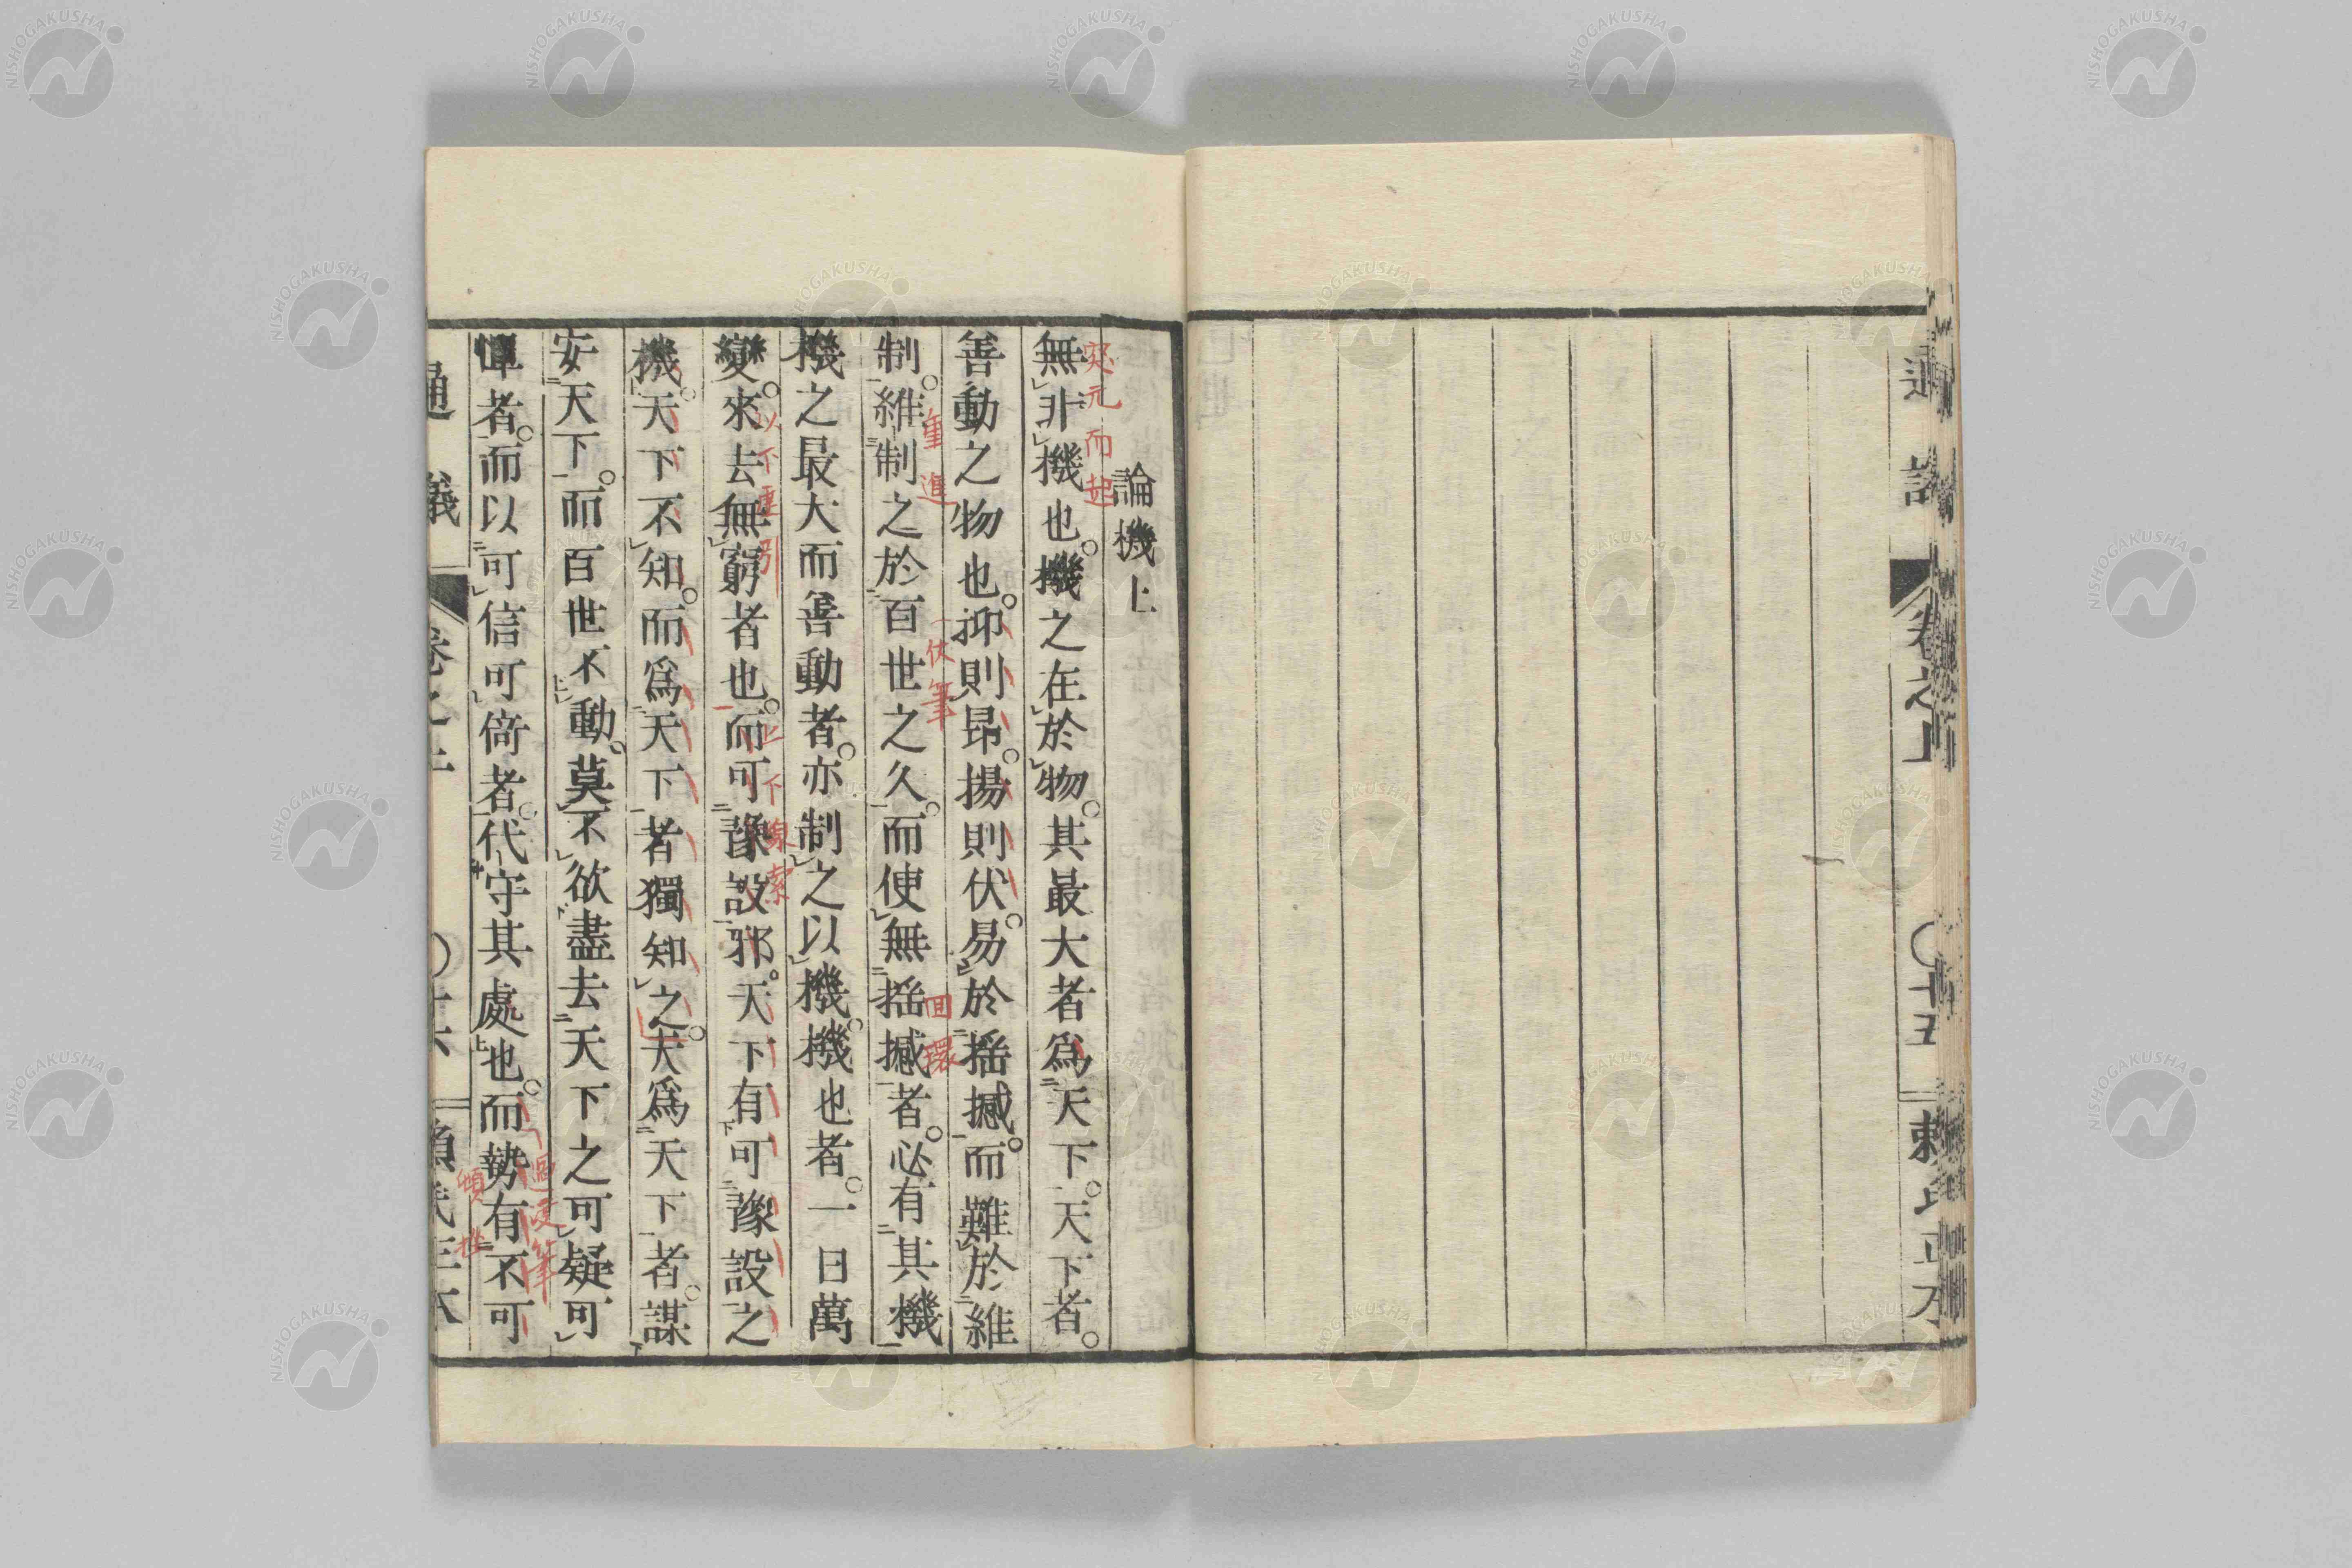 通議 卷之上 〇十五 頼氏正本
論機上
無非機也。機之在於物。其最大者爲天下。天下者。
善動之物也。抑則昂。揚則伏。易於揺撼。而難於維
制。維制之於百世之久。而使無揺撼者。必有其機
機之最大而善動者。亦制之以機。機也者。一日萬
變。來去無窮者也。而可豫設邪。天下有可豫設之
機。天下不知。而爲天下者獨知之。夫爲天下者。謀
安天下。而百世不動。莫不欲盡去天下之可疑可
憚者。而以可信可倚者。代守其處也。而勢有不可
通議 卷之上 〇十六 頼氏正本
突元而起
重進
伏筆
回環
以不重引
上下線索
頓挫
NISHOGAKUSHA